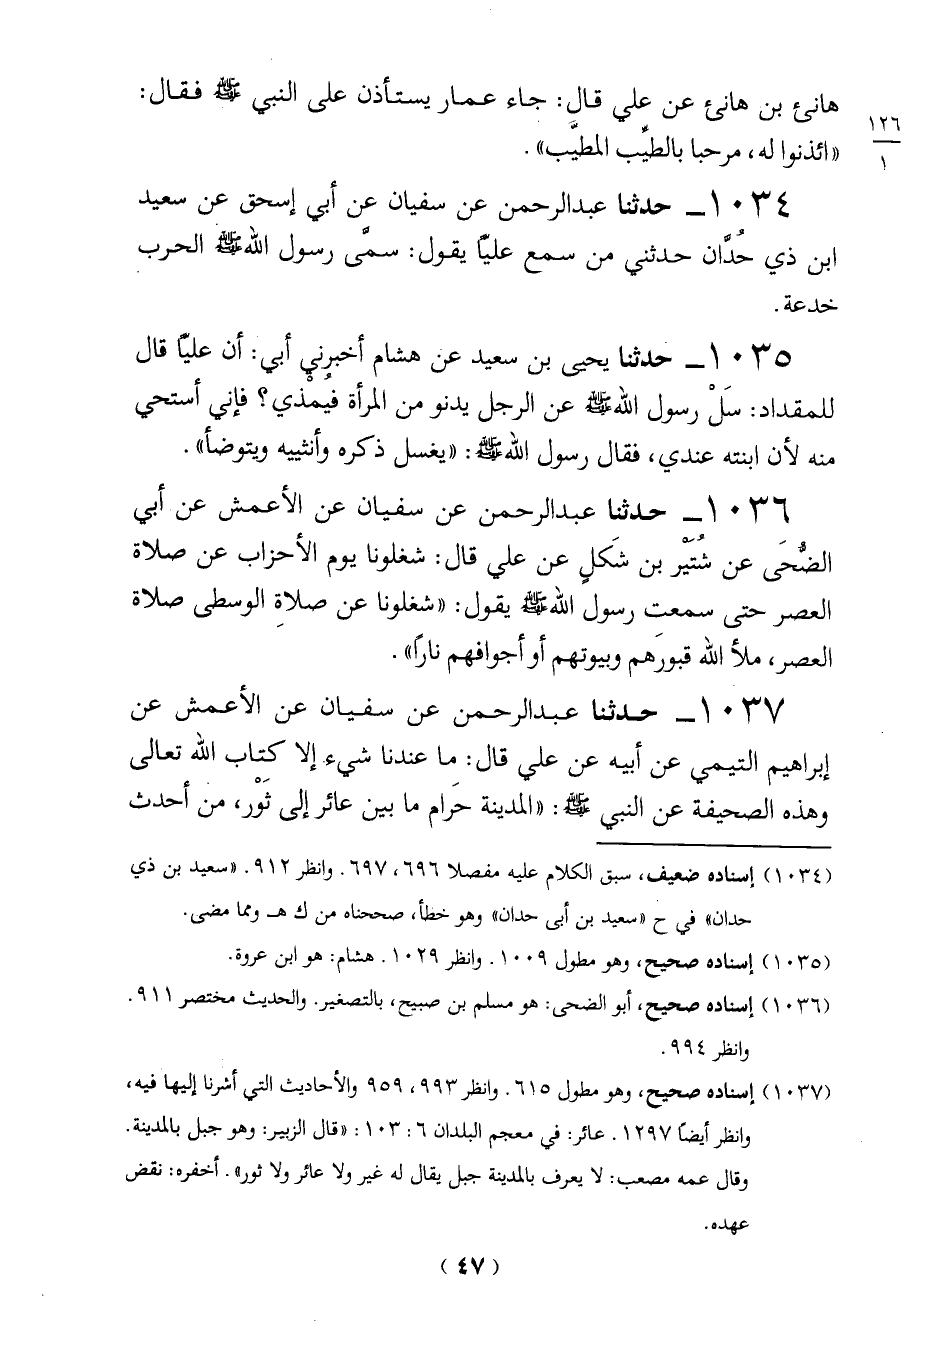 هانئ بن هانئ عن علي قال: جاء عمار يستأذن على النبي ﷺ فقال:
«ائذنوا له، مرحبا بالطيِّب المطيَّب».
١٢٦
١
١٠٣٤ـ حدثنا عبدالرحمن عن سفيان عن أبي إسحق عن سعيد
ابن ذي حُدَّان حدثني من سمع عليّا يقول: سمَّى رسول الله ﷺ الحرب
خدعة.
١٠٣٥ـ حدثنا يحيى بن سعيد عن هشام أخبرني أبي: أن عليّا قال
للمقداد: سَلْ رسول الله ﷺ عن الرجل يدنو من المرأة فيُمْذي؟ فإني أستحي
منه لأن ابنته عندي، فقال رسول الله ﷺ: «يغسل ذكره وأنثييه ويتوضأ».
١٠٣٦ـ حدثنا عبدالرحمن عن سفيان عن الأعمش عن أبي
الضُّحَى عن شُتَيْر بن شَكَلٍ عن علي قال: شغلونا يوم الأحزاب عن صلاة
العصر حتى سمعت رسول الله ﷺ يقول: «شغلونا عن صلاةِ الوسطى صلاة
العصر، ملأ الله قبورَهم وبيوتهم أو أجوافهم ناراً».
١٠٣٧ـ حدثنا عبدالرحمن عن سفيان عن الأعمش عن
إبراهيم التيمي عن أبيه عن علي قال: ما عندنا شيء إلا كتاب الله تعالى
وهذه الصحيفة عن النبي ﷺ: «المدينة حَرام ما بين عائر إلى ثَوْر، من أحدث
(١٠٣٤) إسناده ضعيف، سبق الكلام عليه مفصلا ٦٩٦، ٦٩٧. وانظر ٩١٢. «سعيد بن ذي
حدان» في ح «سعيد بن أبى حدان» وهو خطأ، صححناه من ك هـ ومما مضى.
(١٠٣٥) إسناده صحيح، وهو مطول ١٠٠٩. وانظر ١٠٢٩. هشام: هو ابن عروة.
(١٠٣٦) إسناده صحيح، أبو الضحى: هو مسلم بن صبيح، بالتصغير. والحديث مختصر ٩١١.
وانظر ٩٩٤.
(١٠٣٧) إسناده صحيح، وهو مطول ٦١٥. وانظر ٩٩٣، ٩٥٩ والأحاديث التي أشرنا إليها فيه،
وانظر أيضاً ١٢٩٧. عائر: في معجم البلدان ٦: ١٠٣: «قال الزبير: وهو جبل بالمدينة.
وقال عمه مصعب: لا يعرف بالمدينة جبل يقال له غير ولا عائر ولا ثور». أخفره: نقض
عهده.
(٤٧)